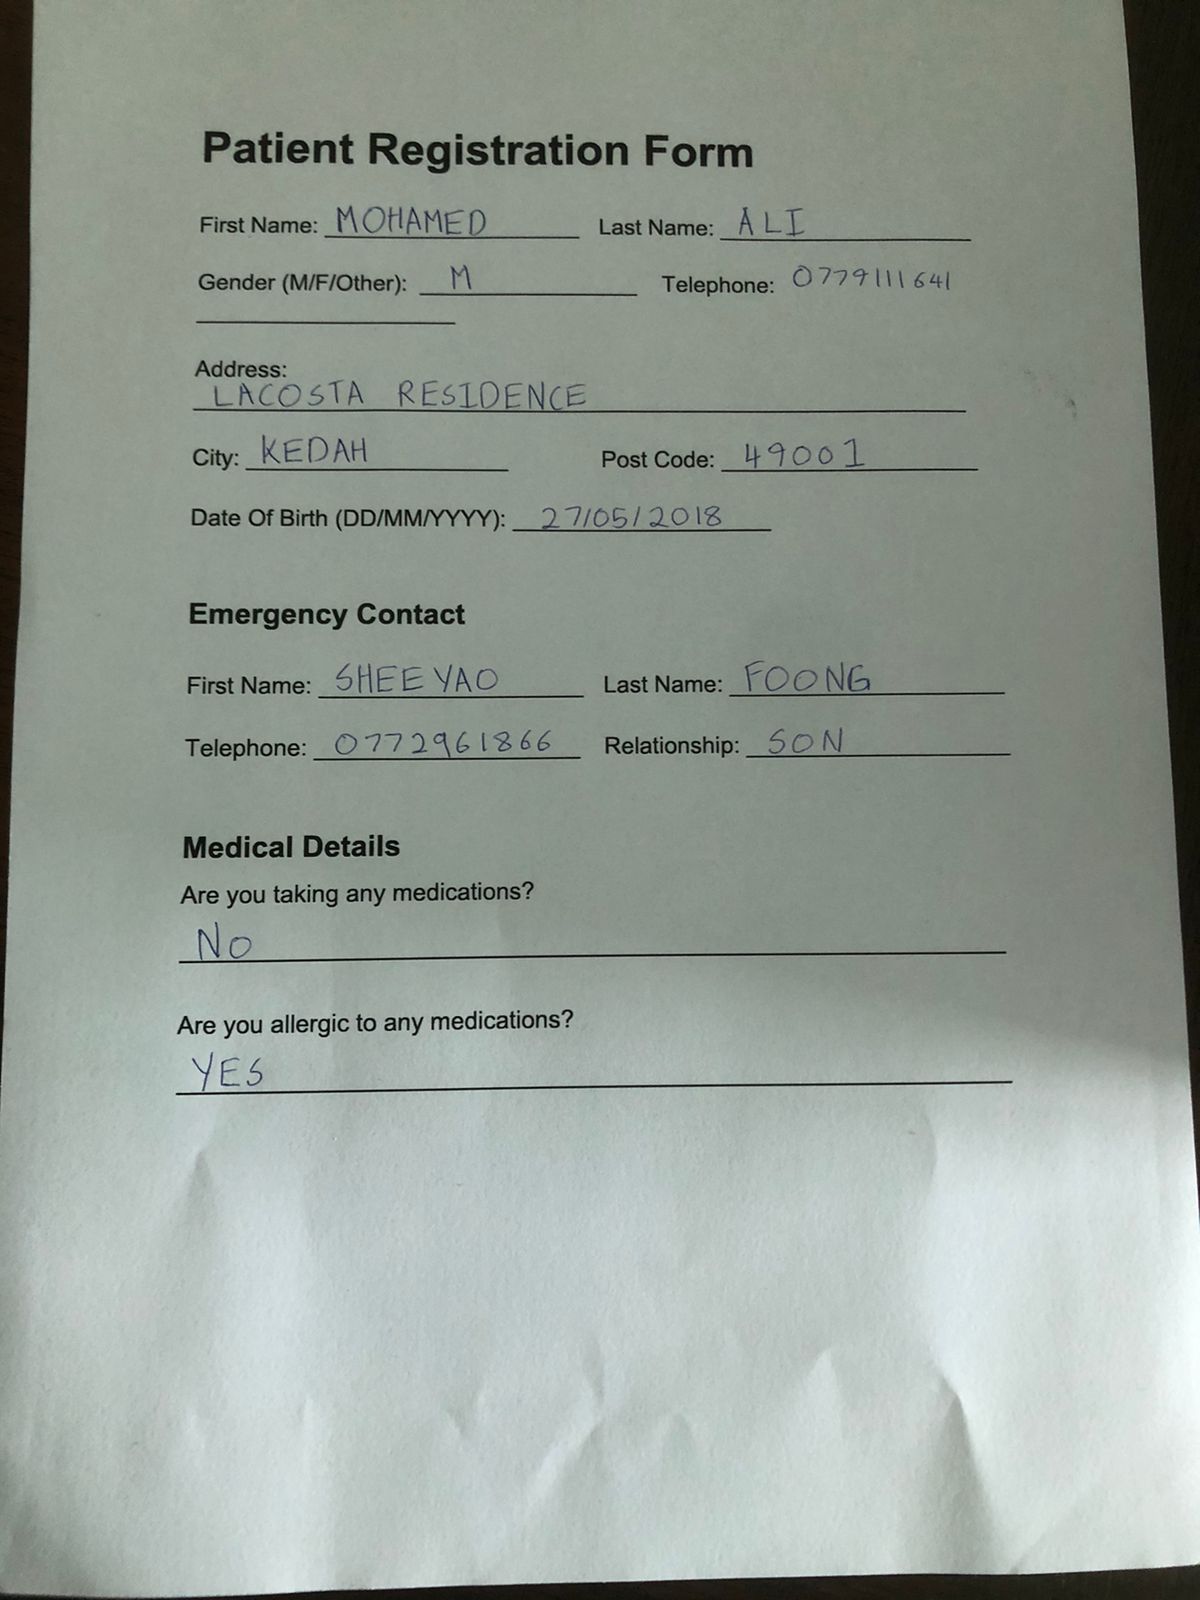 Patient Registration Form
First Name: MOHAMED Last Name: ALI
Gender (M/F/Other): M Telephone: 0779111641
Address:
LACOSTA RESIDENCE
City: KEDAH Post Code: 49001
Date Of Birth (DD/MM/YYYY): 27/05/2018
Emergency Contact
First Name: SHEE YAO Last Name: FOONG
Telephone: 0772961866 Relationship: SON
Medical Details
Are you taking any medications?
No
Are you allergic to any medications?
YES